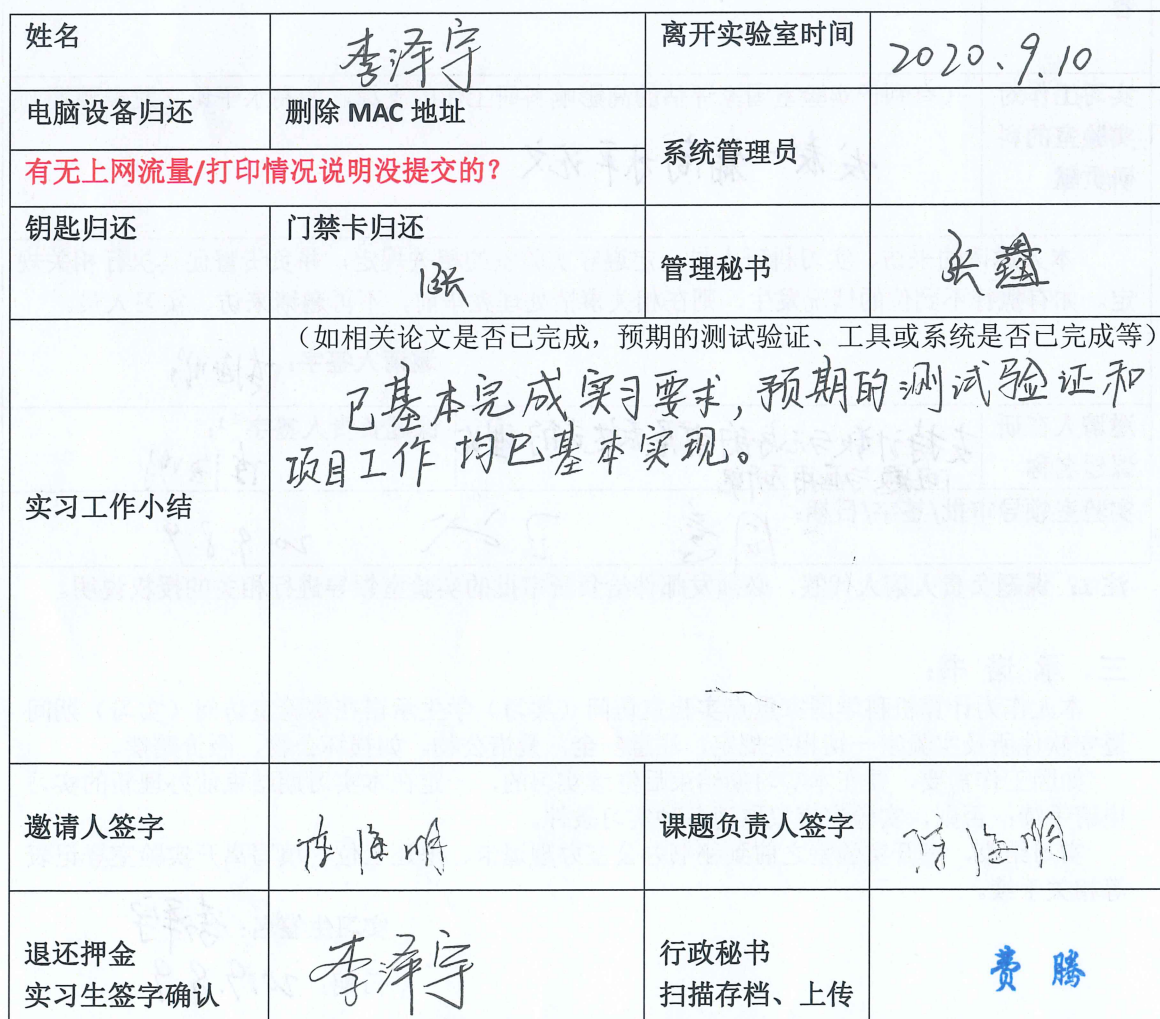 姓名 李泽宇 离开实验室时间 2020.9.10
电脑设备归还 删除 MAC 地址
有无上网流量/打印情况说明没提交的? 系统管理员
钥匙归还 门禁卡归还 管理秘书
(如相关论文是否已完成，预期的测试验证、工具或系统是否已完成等)
已基本完成实习要求，预期的测试验证和
项目工作均已基本实现。
实习工作小结
邀请人签字 陈海明 课题负责人签字 陈海明
退还押金
实习生签字确认 李泽宇
行政秘书
扫描存档、上传 费腾